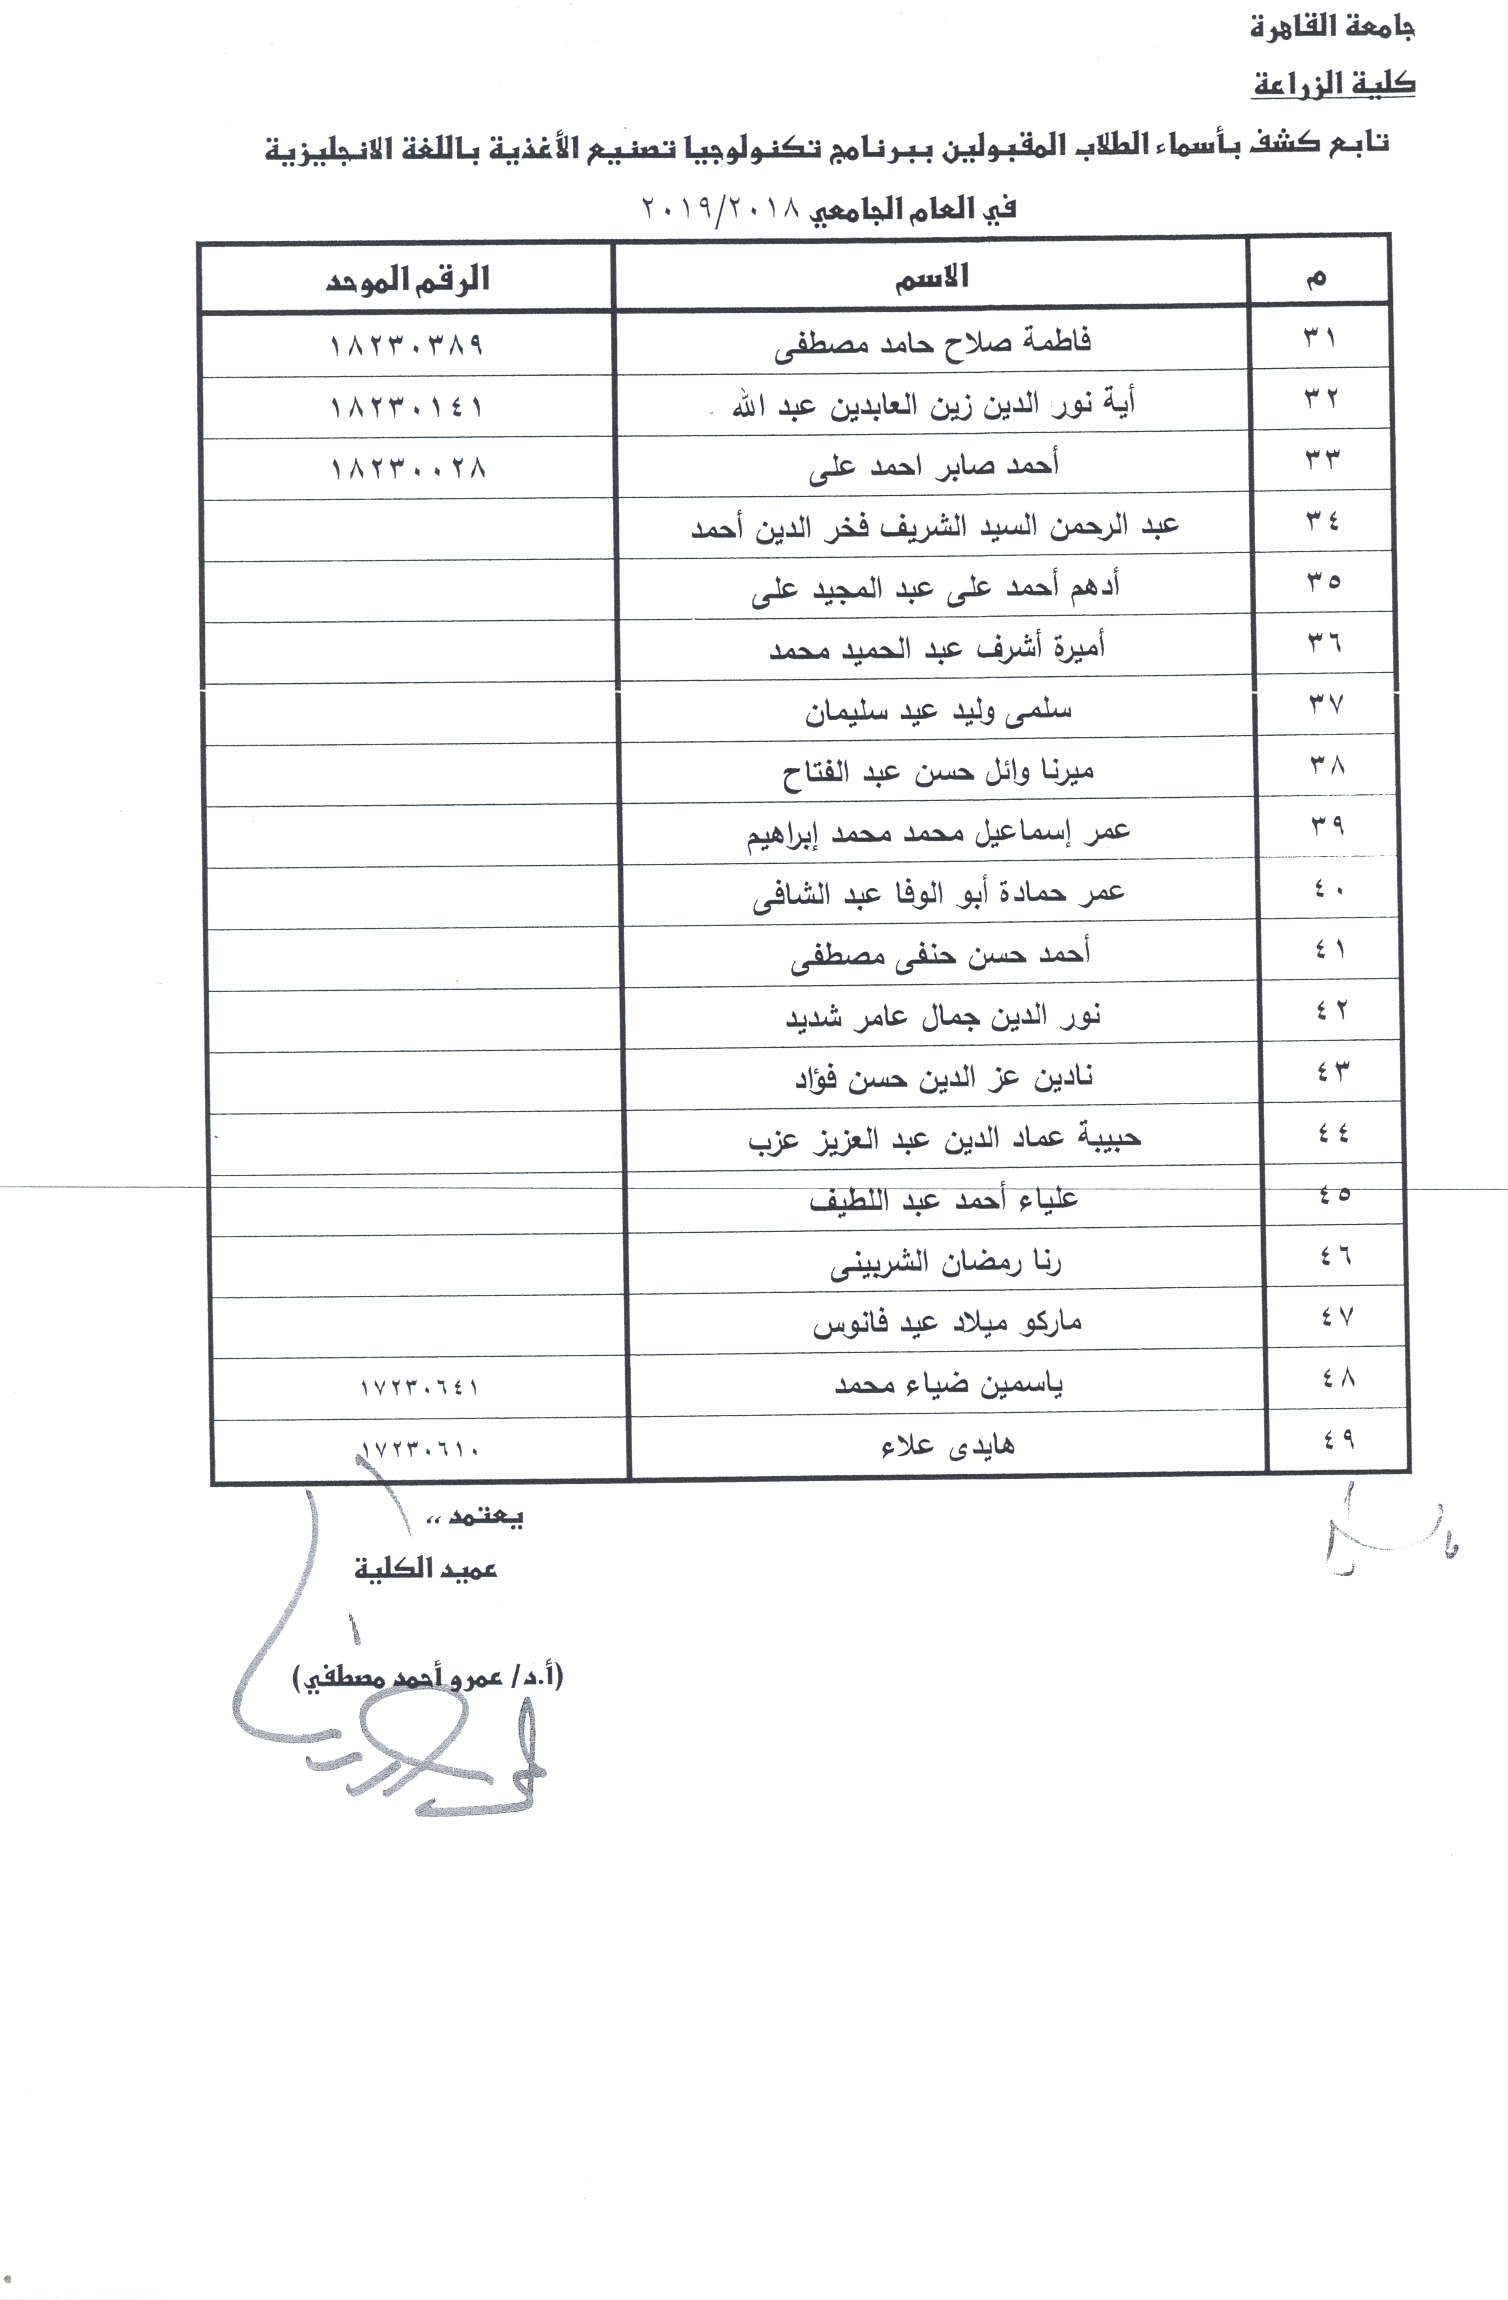 جامعة القاهرة
كلية الزراعة
تابع كشف بأسماء الطلاب المقبولين ببرنامج تكنولوجيا تصنيع الأغذية باللغة الانجليزية
في العام الجامعي ٢٠١٩/٢٠١٨
م الاسم الرقم الموحد
٣١ فاطمة صلاح حامد مصطفى ١٨٢٣٠٣٨٩
٣٢ أية نور الدين زين العابدين عبد الله ١٨٢٣٠١٤١
٣٣ أحمد صابر احمد على ١٨٢٣٠٠٢٨
٣٤ عبد الرحمن السيد الشريف فخر الدين أحمد
٣٥ أدهم أحمد على عبد المجيد على
٣٦ أميرة أشرف عبد الحميد محمد
٣٧ سلمى وليد عيد سليمان
٣٨ ميرنا وائل حسن عبد الفتاح
٣٩ عمر إسماعيل محمد محمد إبراهيم
٤٠ عمر حمادة أبو الوفا عبد الشافى
٤١ أحمد حسن حنفى مصطفى
٤٢ نور الدين جمال عامر شديد
٤٣ نادين عز الدين حسن فؤاد
٤٤ حبيبة عماد الدين عبد العزيز عزب
٤٥ علياء أحمد عبد اللطيف
٤٦ رنا رمضان الشربينى
٤٧ ماركو ميلاد عيد فانوس
٤٨ ياسمين ضياء محمد ١٧٢٣٠٦٤١
٤٩ هايدى علاء ١٧٢٣٠٦١٠
يعتمد ،،
عميد الكلية
(أ.د/ عمرو أحمد مصطفي)